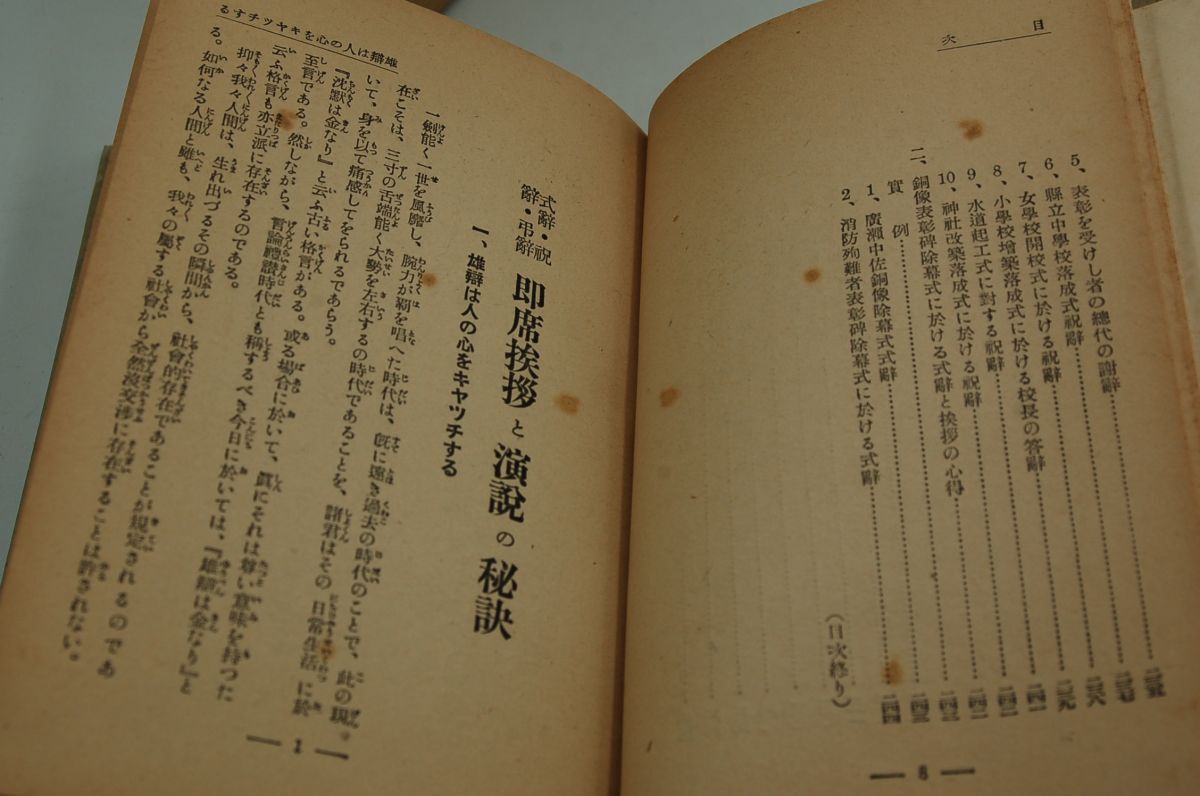 目次
5、表彰を受けし者の總代の謝辭……二三五
6、縣立中學校落成式祝辭……二三七
7、女學校開校式に於ける祝辭……二三八
8、小學校增築落成式に於ける校長の答辭……二三九
9、水道起工式に對する祝辭
10、神社改築落成式に於ける祝辭
二、銅像表彰碑除幕式に於ける式辭と挨拶の心得
實例
1、廣瀨中佐銅像除幕式式辭
2、消防殉難者表彰碑除幕式に於ける式辭
(目次終り)
— 8 —
雄辯は人の心をキヤツチする
式辭・祝辭・弔辭 即席挨拶と演説の秘訣
一、雄辯は人の心をキヤツチする
一劍能く一世を風靡し、腕力が覇を唱へた時代は、旣に遠き過去の時代のことで、此の現
在こそは、三寸の舌端能く大勢を左右するの時代であることを、諸君はその日常生活に於
いて、身を以て痛感してをられるであらう。
『沈默は金なり』と云ふ古い格言がある。或る場合に於いて、眞にそれは尊い意味を持つた
至言である。然しながら、言論禮讃時代とも稱するべき今日に於いては、『雄辯は金なり』と
云ふ格言も亦立派に存在するのである。
抑々我々人間は、生れ出づるその瞬間から、社會的存在であることが規定されるのであ
る。如何なる人間と雖も、我々の屬する社會から全然沒交渉に存在することは許されない。
— 1 —